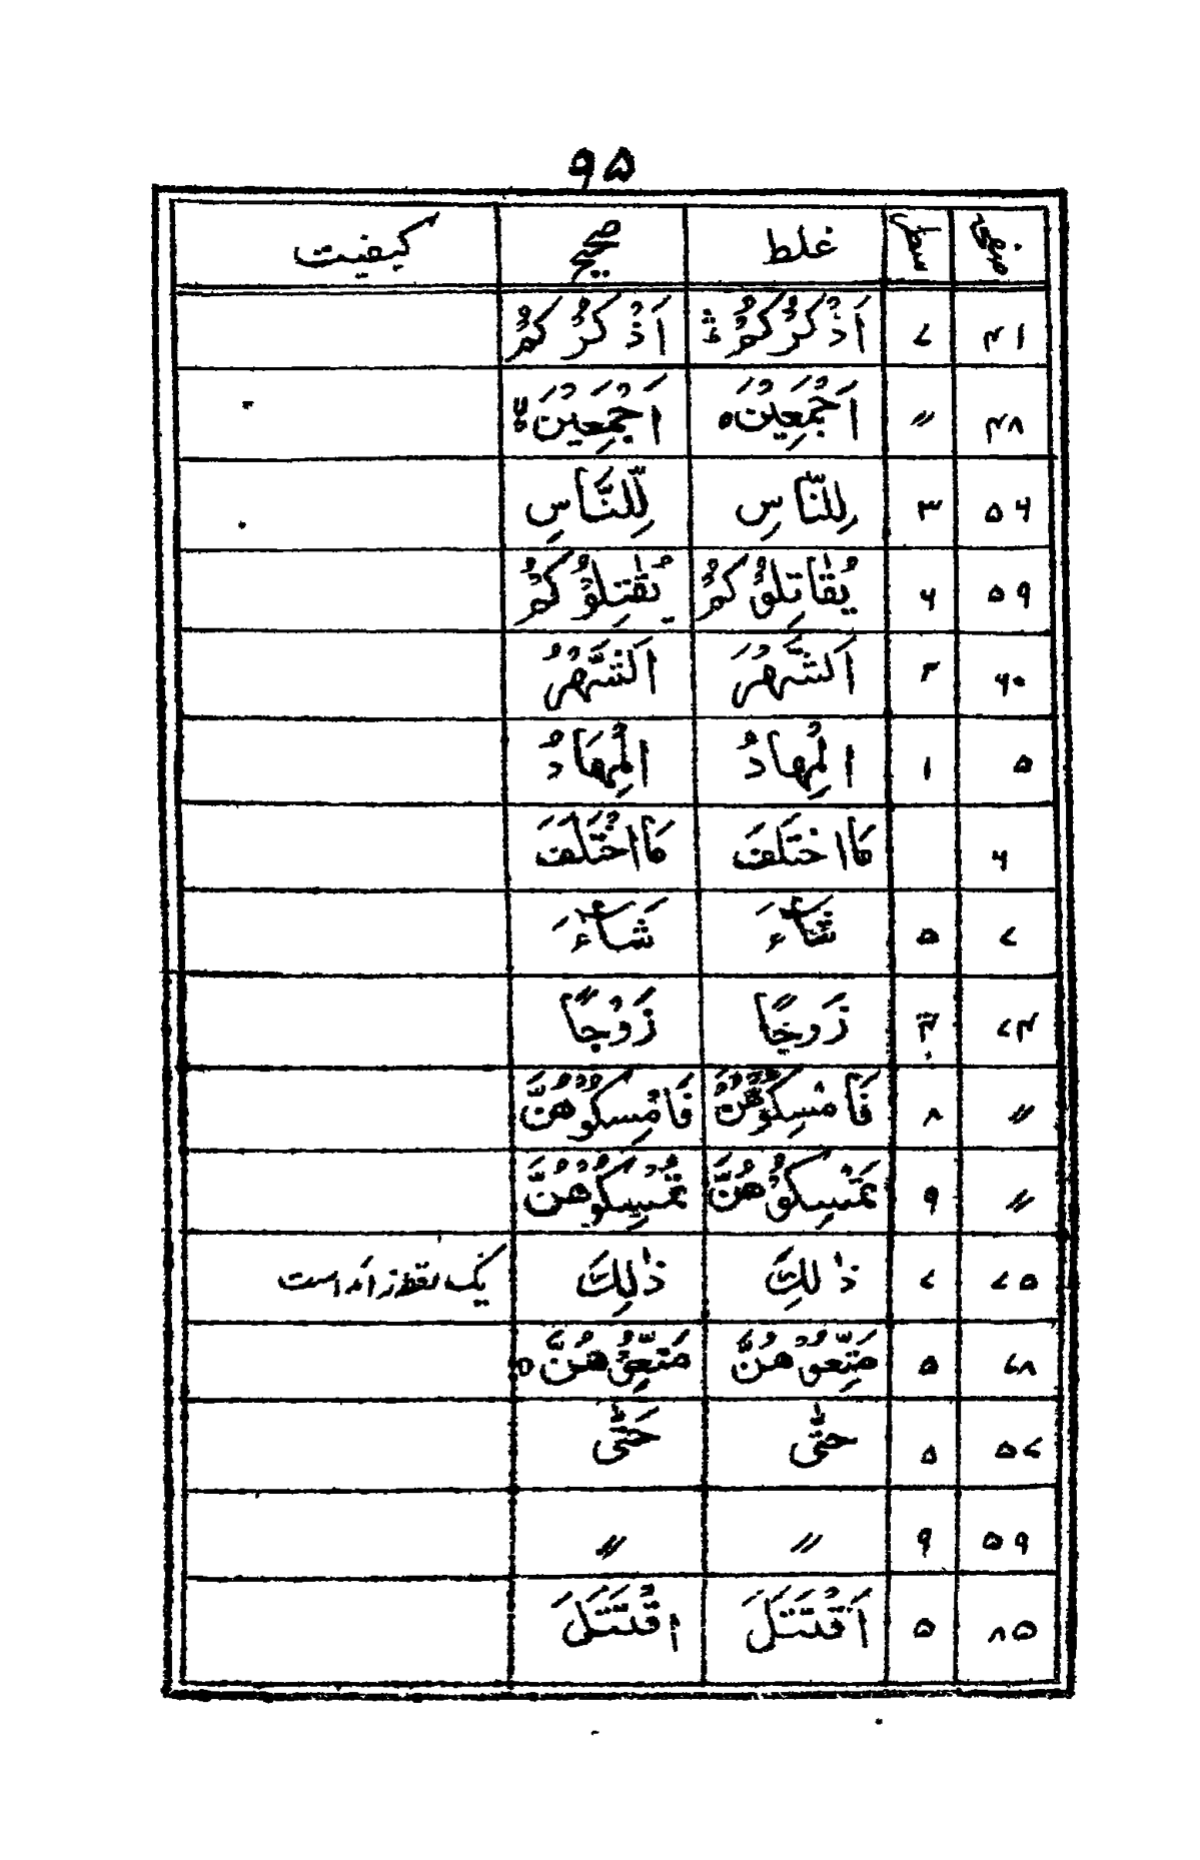 ۹۵
صفحہ سطر غلط صحیح کیفیت
۴۱ ۷ اَذْكُرْكُمْ اَذْكُرْكُمْ
۴۸ // اَجْمَعِيْنَ ه اَجْمَعِيْنَ
۵۶ ۳ لِلنَّاسِ لِّلنَّاسِ
۵۹ ۶ يُقٰاتِلُوْكُمْ يُقٰتِلُوْكُمْ
۶۰ ۳ اَلشَّهْرَ اَلشَّهْرُ
۵ ۱ الْمِهادُ الْمِهَادُ
۶ مَااخْتَلَفَ مَااخْتَلَفَ
۷ ۵ شَآءَ شَآءَ
۷۴ زَوجًا زَوْجًا
// ۸ فَاَمْسِكُوْهُنَّ فَاَمْسِكُوْهُنَّ
// ۹ تُمْسِكُوْهُنَّ تُمْسِكُوْهُنَّ
۷۵ ۷ ذٰلِكَ ذٰلِكَ یک نقطہ زائد است
۷۸ ۵ مَتِّعُوْهُنَّ مَتِّعُوْهُنَّ ه
۵۷ ۵ حتّٰى حَتّٰى
۵۹ ۹ // //
۸۵ ۵ اَقْتَتَلَ اقْتَتَلَ